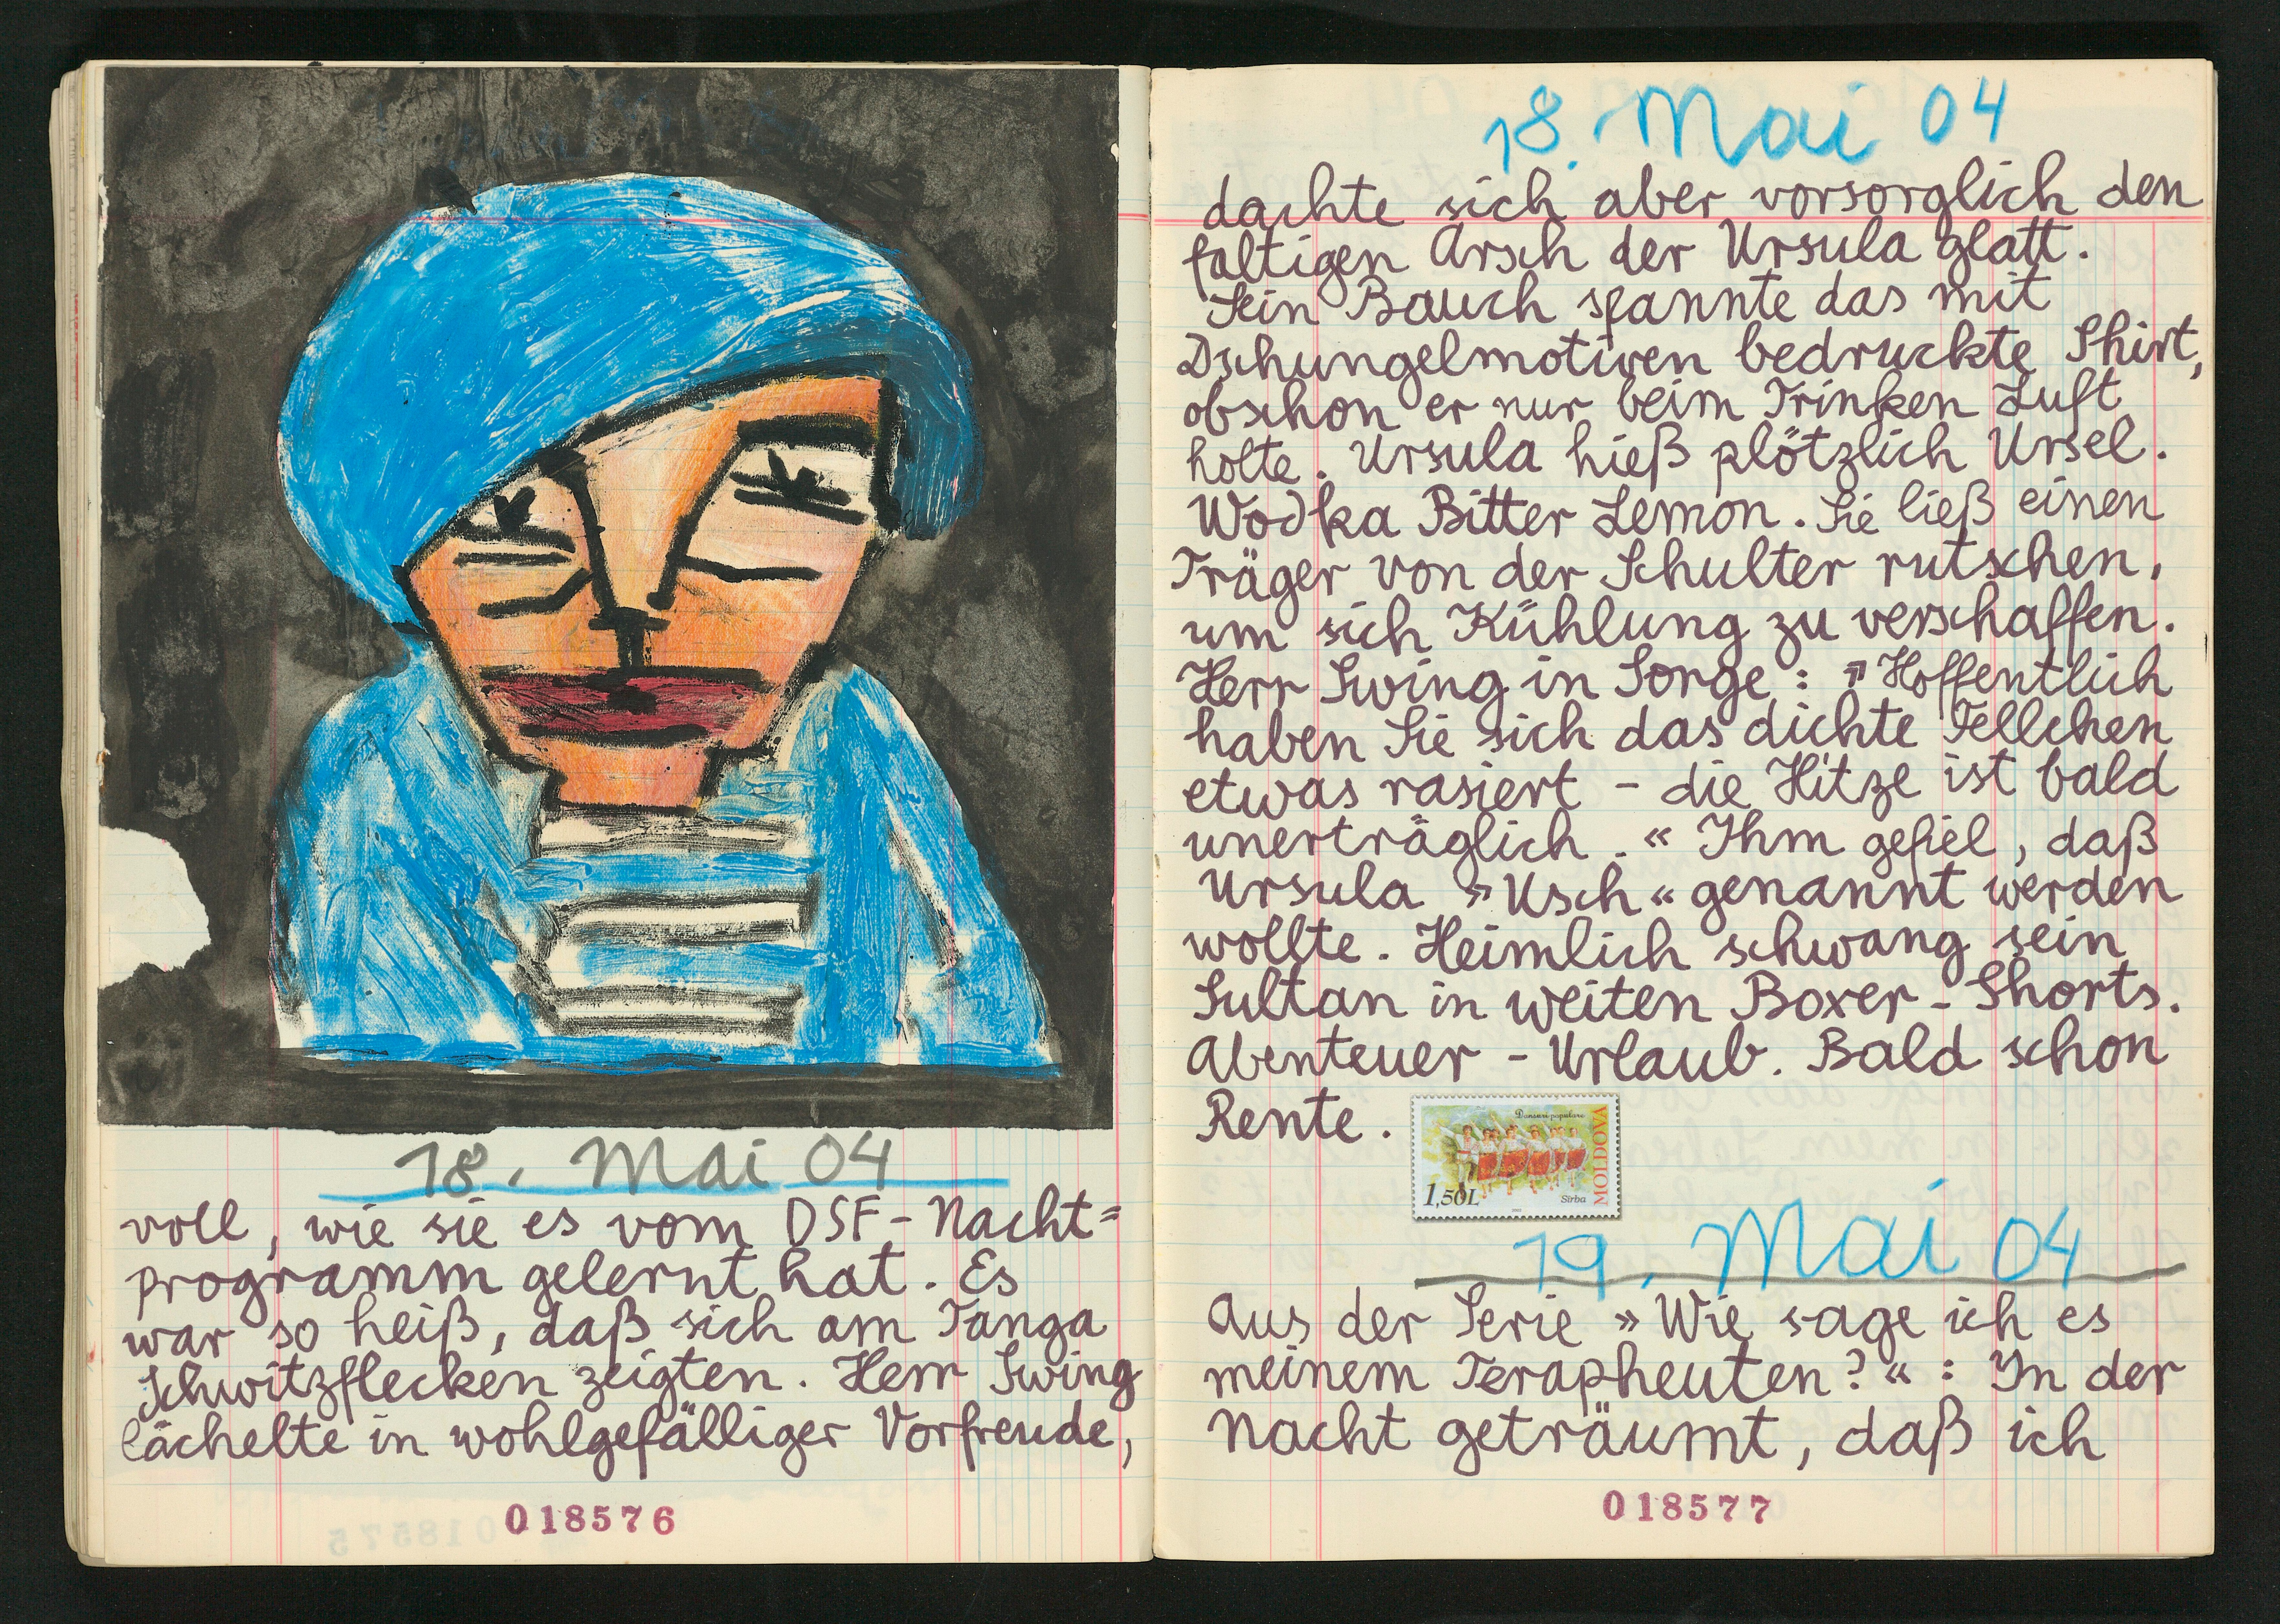 18. Mai 04
voll, wie sie es vom DSF-Nacht=
programm gelernt hat. Es
war so heiß, daß sich am Tanga
Schwitzflecken zeigten. Herr Swing
lächelte in wohlgefälliger Vorfreude,
018576
18. Mai 04
dachte sich aber vorsorglich den
faltigen Arsch der Ursula glatt.
Sein Bauch spannte das mit
Dschungelmotiven bedruckte Shirt,
obschon er nur beim Trinken Luft
holte. Ursula hieß plötzlich Ursel.
Wodka Bitter Lemon. Sie ließ einen
Träger von der Schulter rutschen,
um sich Kühlung zu verschaffen.
Herr Swing in Sorge: »Hoffentlich
haben Sie sich das dichte Fellchen
etwas rasiert - die Hitze ist bald
unerträglich.« Ihm gefiel, daß
Ursula »Usch« genannt werden
wollte. Heimlich schwang sein
Sultan in weiten Boxer-Shorts.
Abenteuer-Urlaub. Bald schon
Rente.
Dansuri populare
MOLDOVA
1,50L
Sîrba
19. Mai 04
Aus der Serie »Wie sage ich es
meinem Terapheuten?«: In der
Nacht geträumt, daß ich
018577